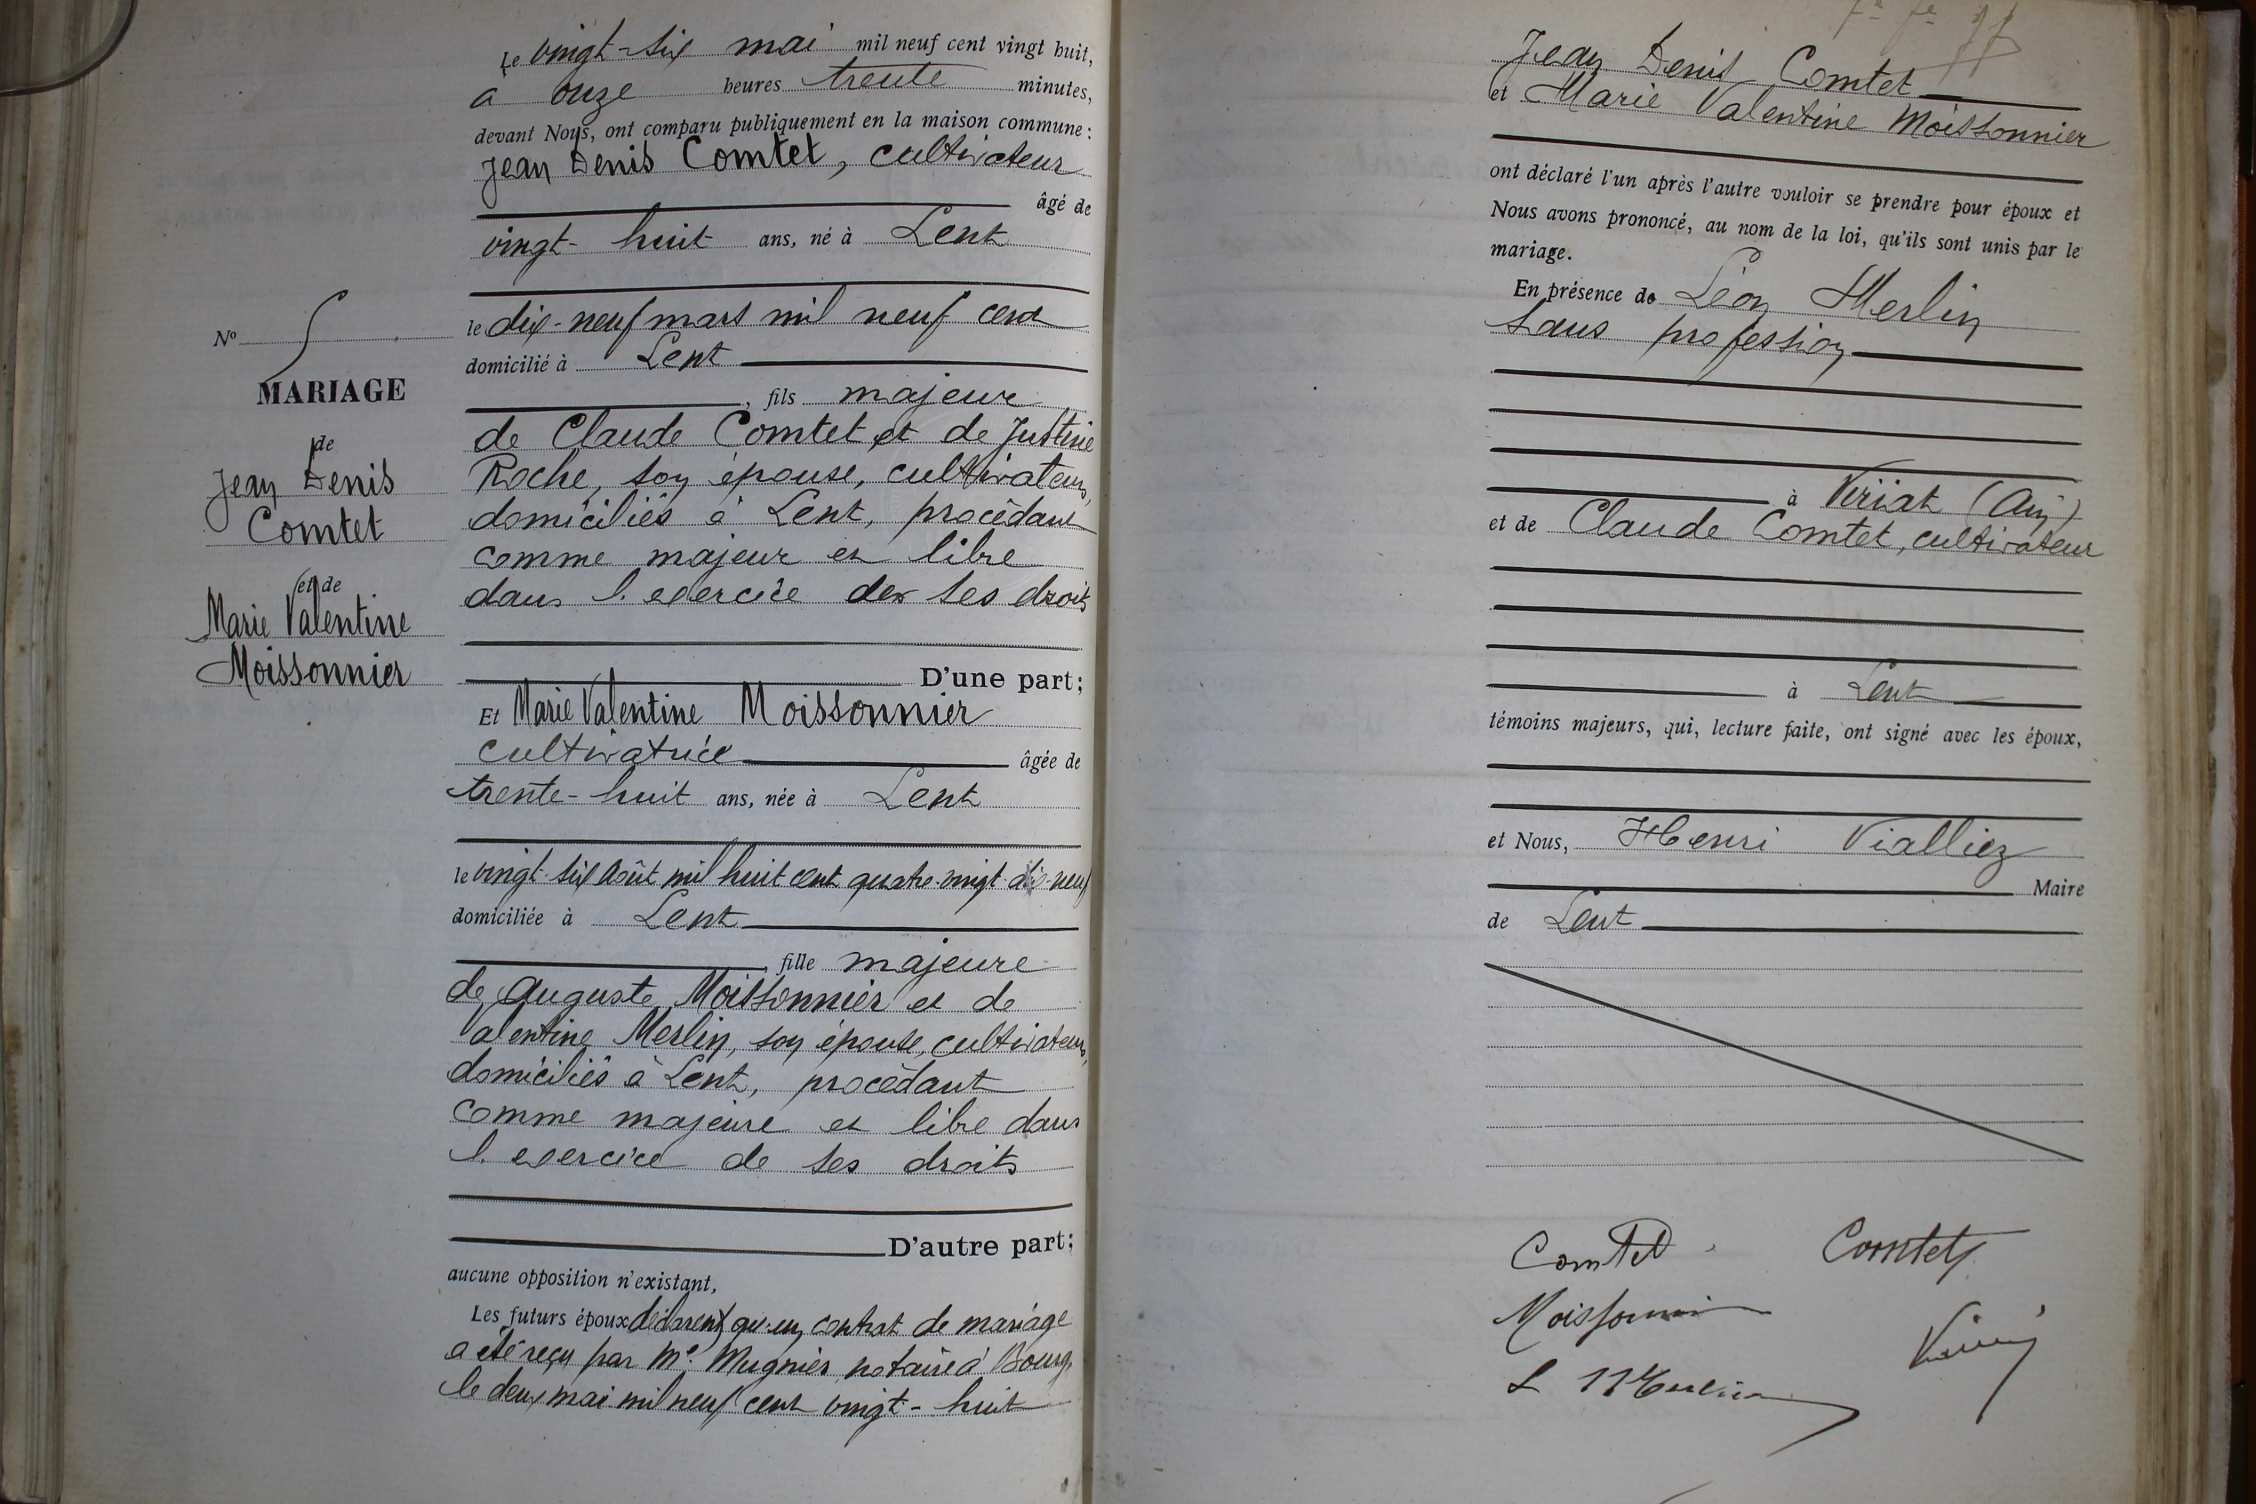 Le vingt-six mai mil neuf cent vingt huit,
à onze heures trente minutes,
devant Nous, ont comparu publiquement en la maison commune :
Jean Denis Comtet, cultivateur
âgé de
vingt-huit ans, né à Lent
le dix-neuf mars mil neuf cent
domicilié à Lent
, fils majeur
de Claude Comtet et de Justine
Roche, son épouse, cultivateurs,
domiciliés à Lent, procédant
comme majeur et libre
dans l'exercice de ses droits
D'une part;
Nº
MARIAGE
de
Jean Denis
Comtet
et de
Marie Valentine
Moissonnier
Et Marie Valentine Moissonnier
cultivatrice âgée de
trente-huit ans, née à Lent
le vingt-six Août mil huit cent quatre-vingt-dix-neuf
domiciliée à Lent
, fille majeure
de Auguste Moissonnier et de
Valentine Merlin, son épouse, cultivateurs,
domiciliés à Lent, procédant
comme majeure et libre dans
l'exercice de ses droits
D'autre part;
aucune opposition n'existant,
Les futurs époux déclarent qu'un contrat de mariage
a été reçu par Me Mugnier, notaire à Bourg,
le deux mai mil neuf cent vingt-huit
Jean Denis Comtet
et Marie Valentine Moissonnier
ont déclaré l'un après l'autre vouloir se prendre pour époux et
Nous avons prononcé, au nom de la loi, qu'ils sont unis par le
mariage.
En présence de Léon Merlin
sans profession
à Viriat (Ain)
et de Claude Comtet, cultivateur
à Lent
témoins majeurs, qui, lecture faite, ont signé avec les époux,
et Nous, Henri Vialliez
Maire
de Lent
Comtet Comtet
Moissonnier
L Merlin